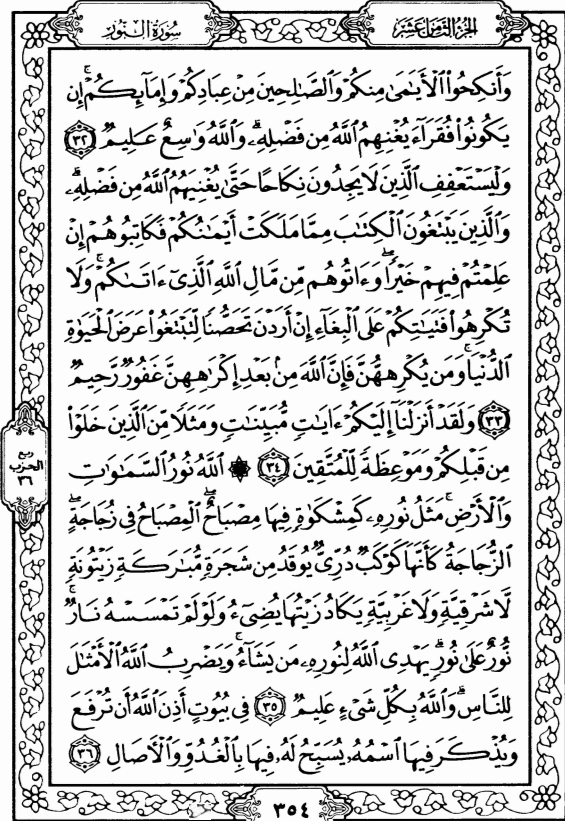 الجزء الثامن عشر
سورة النور
وَأَنكِحُوا۟ ٱلْأَيَٰمَىٰ مِنكُمْ وَٱلصَّٰلِحِينَ مِنْ عِبَادِكُمْ وَإِمَآئِكُمْ ۚ إِن
يَكُونُوا۟ فُقَرَآءَ يُغْنِهِمُ ٱللَّهُ مِن فَضْلِهِۦ ۗ وَٱللَّهُ وَٰسِعٌ عَلِيمٌ ٣٢
وَلْيَسْتَعْفِفِ ٱلَّذِينَ لَا يَجِدُونَ نِكَاحًا حَتَّىٰ يُغْنِيَهُمُ ٱللَّهُ مِن فَضْلِهِۦ ۗ
وَٱلَّذِينَ يَبْتَغُونَ ٱلْكِتَٰبَ مِمَّا مَلَكَتْ أَيْمَٰنُكُمْ فَكَاتِبُوهُمْ إِنْ
عَلِمْتُمْ فِيهِمْ خَيْرًا ۖ وَءَاتُوهُم مِّن مَّالِ ٱللَّهِ ٱلَّذِىٓ ءَاتَىٰكُمْ ۚ وَلَا
تُكْرِهُوا۟ فَتَيَٰتِكُمْ عَلَى ٱلْبِغَآءِ إِنْ أَرَدْنَ تَحَصُّنًا لِّتَبْتَغُوا۟ عَرَضَ ٱلْحَيَوٰةِ
ٱلدُّنْيَا ۚ وَمَن يُكْرِههُّنَّ فَإِنَّ ٱللَّهَ مِنۢ بَعْدِ إِكْرَٰهِهِنَّ غَفُورٌ رَّحِيمٌ
٣٣ وَلَقَدْ أَنزَلْنَآ إِلَيْكُمْ ءَايَٰتٍ مُّبَيِّنَٰتٍ وَمَثَلًا مِّنَ ٱلَّذِينَ خَلَوْا۟
مِن قَبْلِكُمْ وَمَوْعِظَةً لِّلْمُتَّقِينَ ٣٤ ۞ ٱللَّهُ نُورُ ٱلسَّمَٰوَٰتِ
وَٱلْأَرْضِ ۚ مَثَلُ نُورِهِۦ كَمِشْكَوٰةٍ فِيهَا مِصْبَاحٌ ۖ ٱلْمِصْبَاحُ فِى زُجَاجَةٍ ۖ
ٱلزُّجَاجَةُ كَأَنَّهَا كَوْكَبٌ دُرِّىٌّ يُوقَدُ مِن شَجَرَةٍ مُّبَٰرَكَةٍ زَيْتُونَةٍ
لَّا شَرْقِيَّةٍ وَلَا غَرْبِيَّةٍ يَكَادُ زَيْتُهَا يُضِىٓءُ وَلَوْ لَمْ تَمْسَسْهُ نَارٌ ۚ
نُّورٌ عَلَىٰ نُورٍ ۗ يَهْدِى ٱللَّهُ لِنُورِهِۦ مَن يَشَآءُ ۚ وَيَضْرِبُ ٱللَّهُ ٱلْأَمْثَٰلَ
لِلنَّاسِ ۗ وَٱللَّهُ بِكُلِّ شَىْءٍ عَلِيمٌ ٣٥ فِى بُيُوتٍ أَذِنَ ٱللَّهُ أَن تُرْفَعَ
وَيُذْكَرَ فِيهَا ٱسْمُهُۥ يُسَبِّحُ لَهُۥ فِيهَا بِٱلْغُدُوِّ وَٱلْءَاصَالِ ٣٦
ربع
الحزب
٣٦
٣٥٤